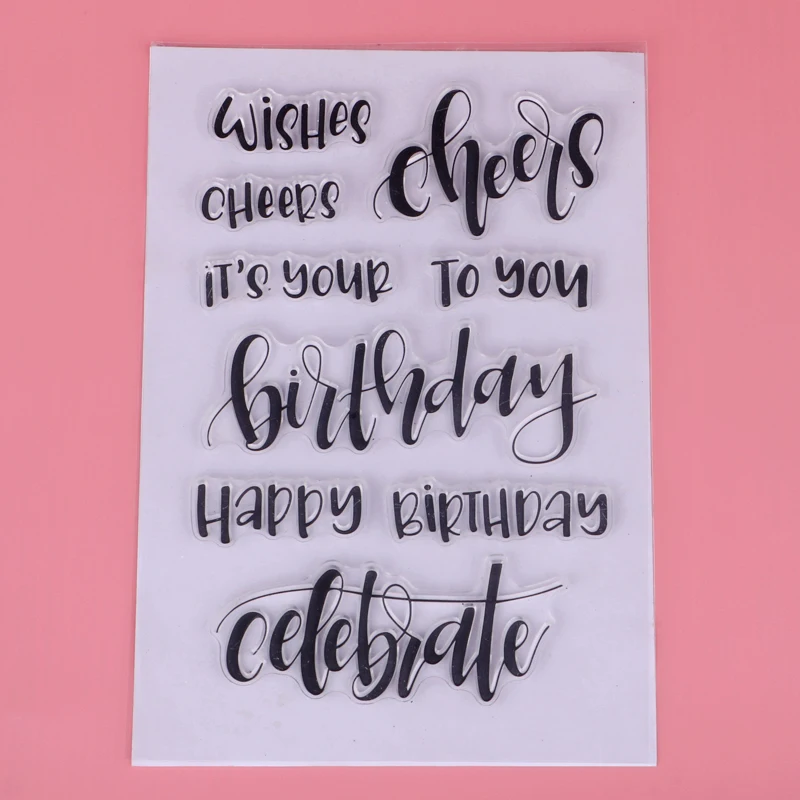 WisHes
cheers
CHEERS
iT'S YOUR
TO YOU
birthday
Happy BiRTHDay
celebrate